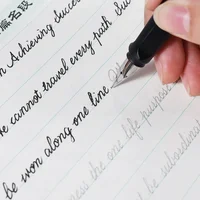 赢名段
n Achieving success
e cannot travel every path Suc
be won along one line
ess the one life purpose
be subordinat